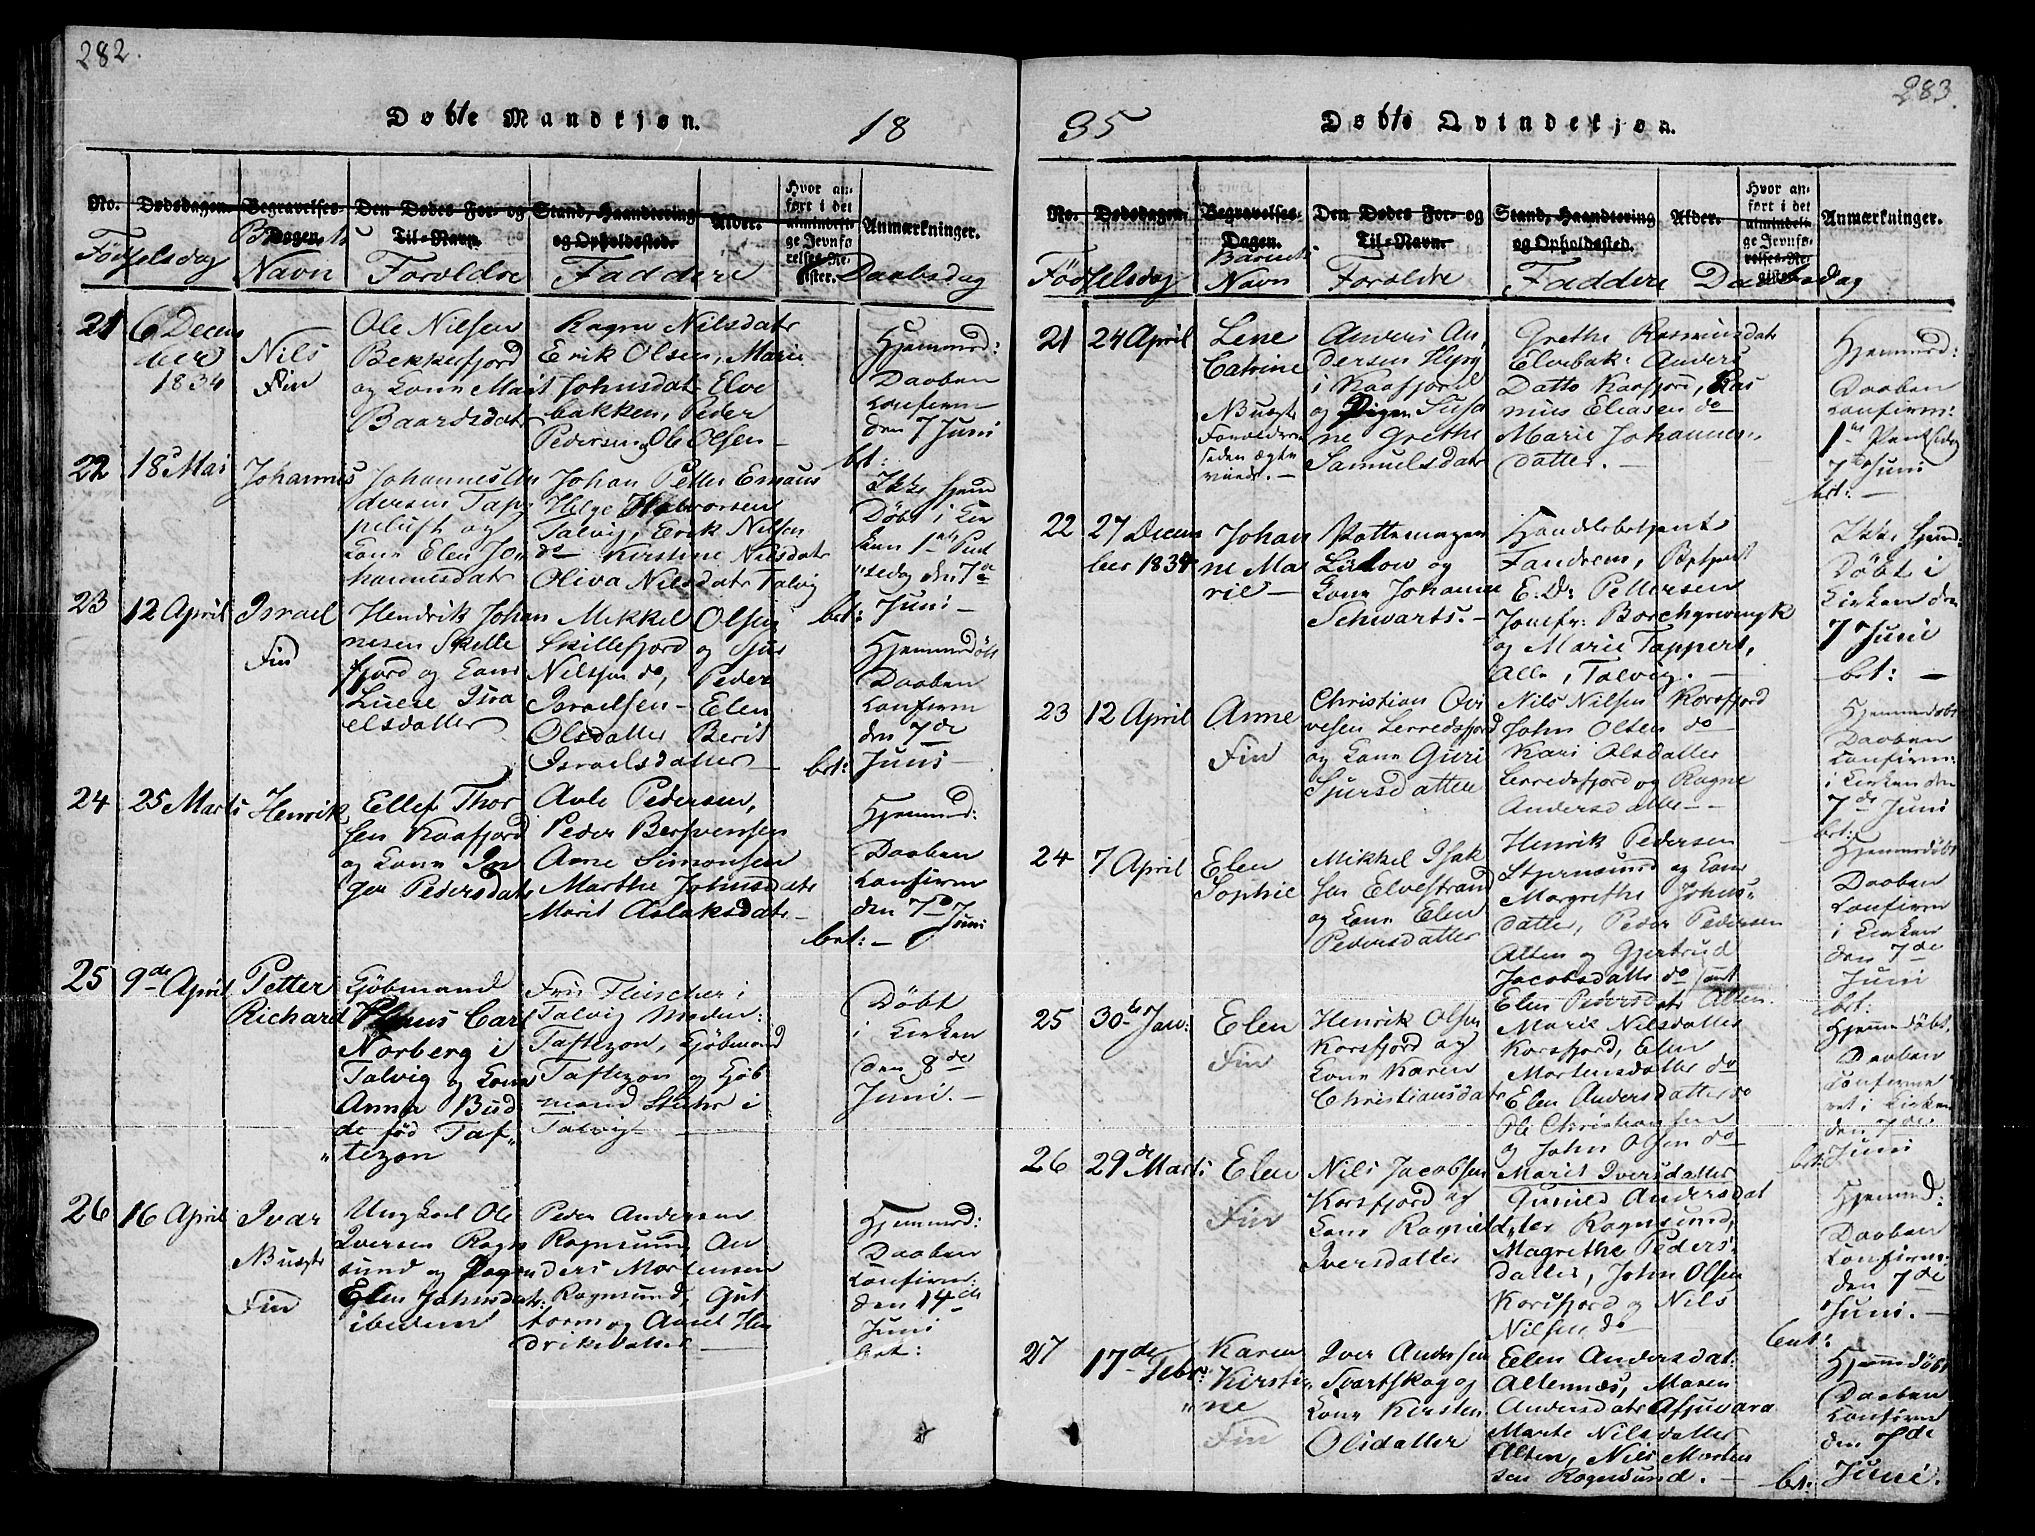 282.
Døbte Mandkjøn.
18
No. Dødsdagen. Begravelses-Dagen. Den Dødes For- og Til-Navn. Stand, Haandtering og Opholdssted. Alder. Hvor anført i det almindelige Jevnførelses-Register. Anmærkninger.
Födselsdag Barnets Navn Forældre Faddere Daabsdag
21
6 Decem
ber
1834
Nils
Fin
Ole Nilsen
Bekkefjord
og Kone Marit
Baardsdatr
Ragne Nilsdatr
Erik Olsen, Marie
Johnsdatr Elve
bakken, Peder
Pedersen og Ole Olsen
Hjemmed:
Daaben
Confirm
den 7 Juni
bet:
22
18 Mai
Johannes
Johannes An
dersen Tap
peluft og
Kone Elen Jo
hannesdatr
Johan Petter Emaus
Helge Halvorsen
Talvig, Erik Nilsen
do Kirstine Nilsdatr
Oliva Nilsdatr Talvig
Ikke hjem
Döbt i Kir
ken 1ste Pint
sedag den 7de
Juni
bet:
23
12 April
Israel
Fin
Hendrik Johan
nesen Skille
fjord og Kone
Lucie Isra
elsdatter
Mikkel Olsen
Skillefjord og
Nilsen do, Peder
Israelsen Elen
Olsdatter Berit
Israelsdatter
Hjemmedöbt
Daaben
Confirm
den 7de
Juni
bet:
24
25 Marts
Henrik
Ellef Thor
sen Kaafjord
og Kone In
ger Pedersdatr
Avle Pedersen,
Peder Bersvensen
Arne Simonsen
Marthe Johnsdatr
Marit Aslaksdatr
Hjemmed:
Daaben
Confirm
den 7de Juni
bet:
25
9de April
Petter
Richard
Kjöbmand
Carl
Norberg i
Talvig og Kone
Anna Bud
de föd Taf
tezon
Fru Fleischer i
Talvig Madm:
Taftezon, Kjöbmand
Taftezon og Kjöb
mand Stuhr i
Talvig
Döbt
i Kirken
den 8de
Juni.
26
16 April
Ivar
Uægte
Fin
Ungkarl Ole
Iversen Rogn
sund og Pigen
Elen Johnsdatr:
ibidem
Peder Andersen
Rognsund, An
ders Mortensen
Rognsund, Gut
torm og Anne Hen
driksdatter
Hjemmed:
Daaben
Confirm:
den 14de
Juni
bet:
283.
35
Døbte Qvindekjøn.
No. Dødsdagen. Begravelses-Dagen. Den Dødes For- og Til-Navn. Stand, Haandtering og Opholdssted. Alder. Hvor anført i det almindelige Jevnførelses-Register. Anmærkninger.
Födselsdag Barnets Navn Forældre Faddere Daabsdag
21
24 April
Lene
Catrine
Uægte
Forældrene
siden ægte
viede.
Anders An
dersen
i Kaafjord
og Pigen Susa
ne Grethe
Samuelsdatr
Grethe Rasmusdatr
Elvebak: Anders
Datto Kaafjord, Ras
mus Eliasen do
Marie Johannes
datter.
Hjemmed:
Daaben
Confirm:
1ste Pintsedag
7de Juni
bet:
22
27 Decem
ber 1834
Johan
ne Ma
rie
Pottemager
Lülow og
Kone Johanne
Schwarts.
Handelsbetjent
Fandrem,
E. D. Pettersen
Jomfr: Borchgrewingk
og Marie Tappert,
Alle i Talvig.
Ikke hjem:
Döbt i
Kirken den
7 Juni
bet:
23
12 April
Anne
Fin
Christian Qvi
vesen Lerredsfjord
og Kone Guri
Sjursdatter
Nils Nilsen Korsfjord
John Olsen do
Kari Olsdatter
Lerredsfjord og Ragne
Andersdatter
Hjemmedöbt
Daaben
Confirm:
i Kirken den
7de Juni
bet:
24
7 April
Elen
Sophie
Mikkel Isak
sen Elvestrand
og Kone Elen
Pedersdatter
Henrik Pedersen
Stjernsund og Kone
Margrethe Johns
datter, Peder Pedersen
Alten og Gjertrud
Jacobsdatter do samt
Elen Pedersdatr Alten.
Hjemmedöbt
Daaben
Confirm
i Kirken
den 7de
Juni
bet:
25
30de Jan:
Elen
Fin
Henrik Olsen
Korsfjord og
Kone Karen
Christiansdatr
Marie Nilsdatter
Korsfjord, Elen
Mortensdatter do
Elen Andersdatter do
Ole Christiansen
og John Olsen do
Hjemmedöbt.
Daaben
Confirme
ret i Kirken
den 7de
Juni
bet:
26
29de Marts
Elen
Fin
Nils Jacobsen
Korsfjord og
Kone Ragnild
Iversdatter
Marit Iversdatter
Gunild Andersdat
ter Rognsund,
Magrethe Peders
datter, John Olsen
Korsfjord og Nils
Nilsen do
Hjemmed:
Daaben
Confirm:
den 7de
Juni.
bet:
27
17de Febr:
Karen
Kirsti
ne
Fin
Iver Andersen
Svartskog og
Kone Kirsten
Olsdatter
Elen Andersdat:
Altennæs, Maren
Andersdatr
Marte Nilsdatter
Alten, Nils Morten
sen Rognsund.
Hjemmedöbt
Daaben
Confirm
den 7de
Juni.
bet: